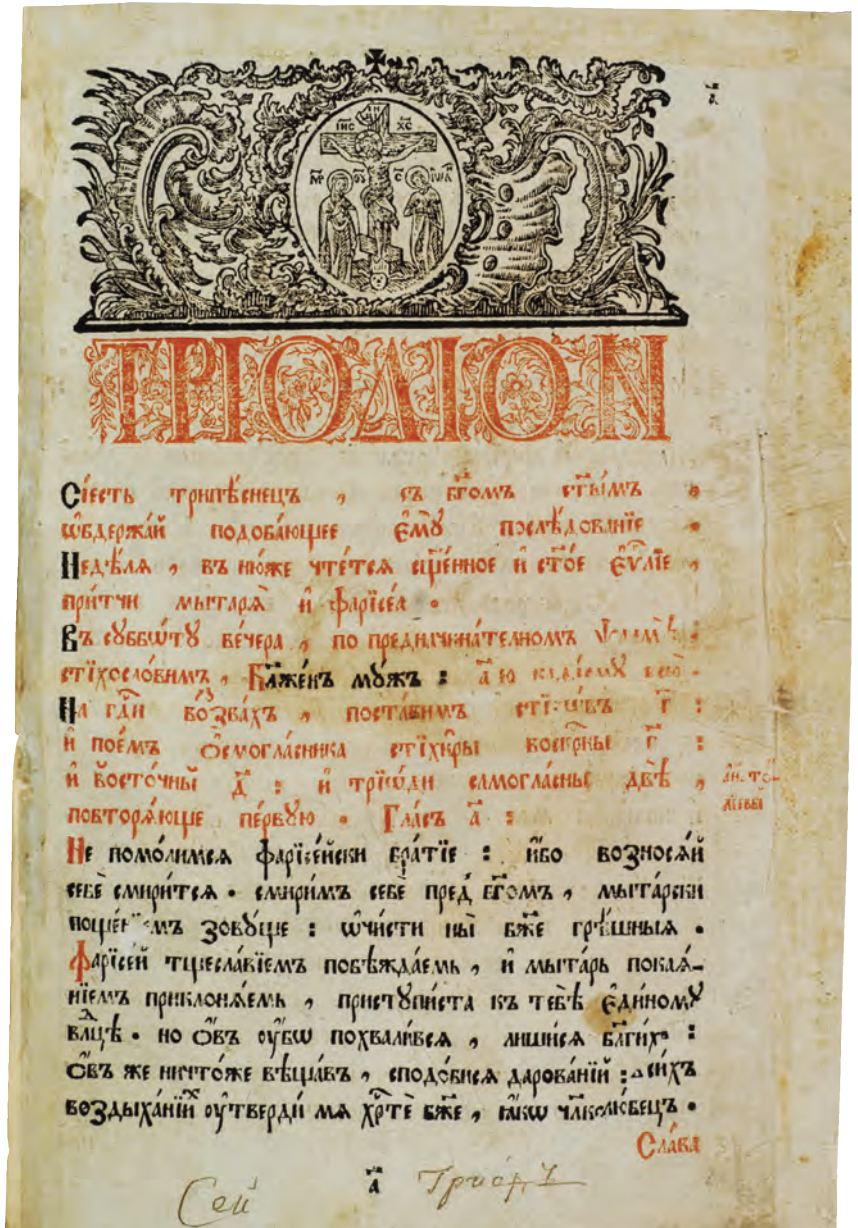 а҃
І҆НС ХС
ТРІѠДІОН
Сіе́сть трипѣ́снецъ , съ бг҃омъ ст҃ы́мъ ,
ѡ҆бдержа́й подоба́ющее є҆мꙋ̀ послѣ́дованїе .
Недѣ́лѧ , въ ню́же чте́тсѧ сщ҃е́нное и҆ ст҃о́е є҆ѵ҃лїе ,
при́тчи мытарѧ̀ и҆ фарїсе́ѧ .
Въ сꙋббѡ́тꙋ ве́чера , по предначина́телномъ
стїхосло́вимъ , Бл҃же́нъ мꙋ́жъ : а҃ ю
На гд҇и воззва́хъ , поста́вимъ г҃ :
и҆ пое́мъ ѻ҆смогла́сника стїхи̑ры воскр҇ны г҃ :
и҆ восто́чны д҃ : и҆ трїѡ́ди самогла́сны двѣ̀ ,
повторѧ́юще пе́рвꙋю . Гла́съ а҃ :
Не помо́лимсѧ фарїсе́йски бра́тїе : и҆́бо возносѧ́й
себѐ смири́тсѧ . смири́мъ себѐ пред̾ бг҃омъ , мыта́рски
зовꙋ́ще : ѡ҆чи́сти ны̀ бж҃е грѣ́шныѧ .
Фарїсе́й тщесла́вїемъ побѣжда́емь , и҆ мыта́рь покаѧ́-
нїемъ приклонѧ́емь , пристꙋпи́ста къ тебѣ̀ є҆ди́номꙋ
влⷣцѣ . но ѻ҆́въ ᲂу҆́бѡ похвали́всѧ , лиши́сѧ бл҃ги́хъ :
ѻ҆́въ же ничто́же вѣща́въ , сподо́бисѧ дарова́нїй : си́хъ
воздыха́нїй ᲂу҆тверди́ мѧ хрⷭ҇тѐ бж҃е , ꙗ҆́кѡ чл҃колю́бецъ .
Сла́ва
а҃
Сей